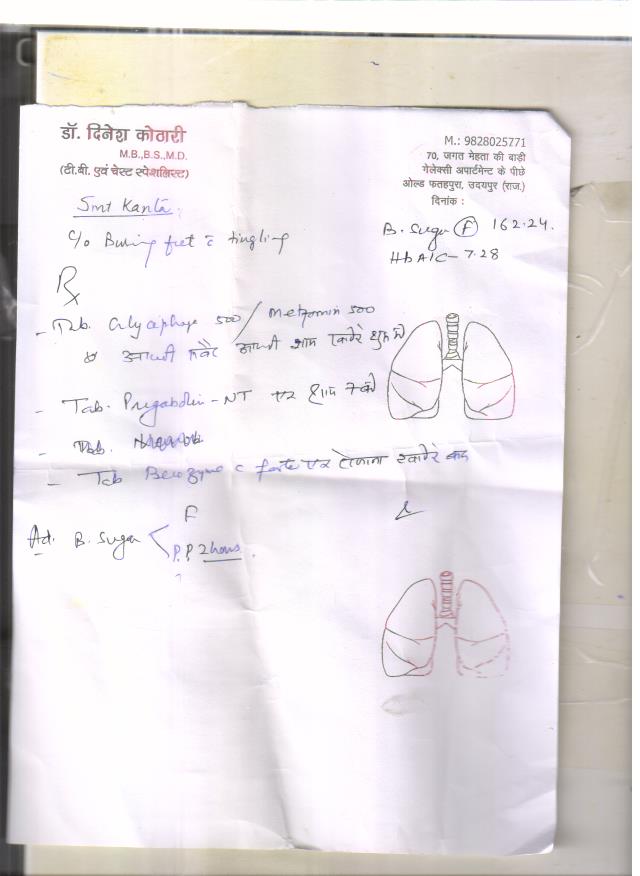 डॉ. दिनेश कोठारी
M.B.,B.S.,M.D.
(टी.बी. एवं चेस्ट स्पेशलिस्ट)
M.: 9828025771
70, जगत मेहता की बाड़ी
गेलेक्सी अपार्टमेन्ट के पीछे
ओल्ड फतहपुरा, उदयपुर (राज.)
दिनांक :
Smt Kanta
B. Sugar (F) 162.24.
HbA1C - 7.28
c/o Burning feet c tingling
Rx
- Tab. Glyciphage 500 / Metformin 500
आधी आधी शाम
- Tab. Pregabalin - NT एक शाम 7 बजे
- Tab.
- Tab Becozyme c forte एक रोजाना बाद
Ad. B. Sugar F
P.P 2 hours.